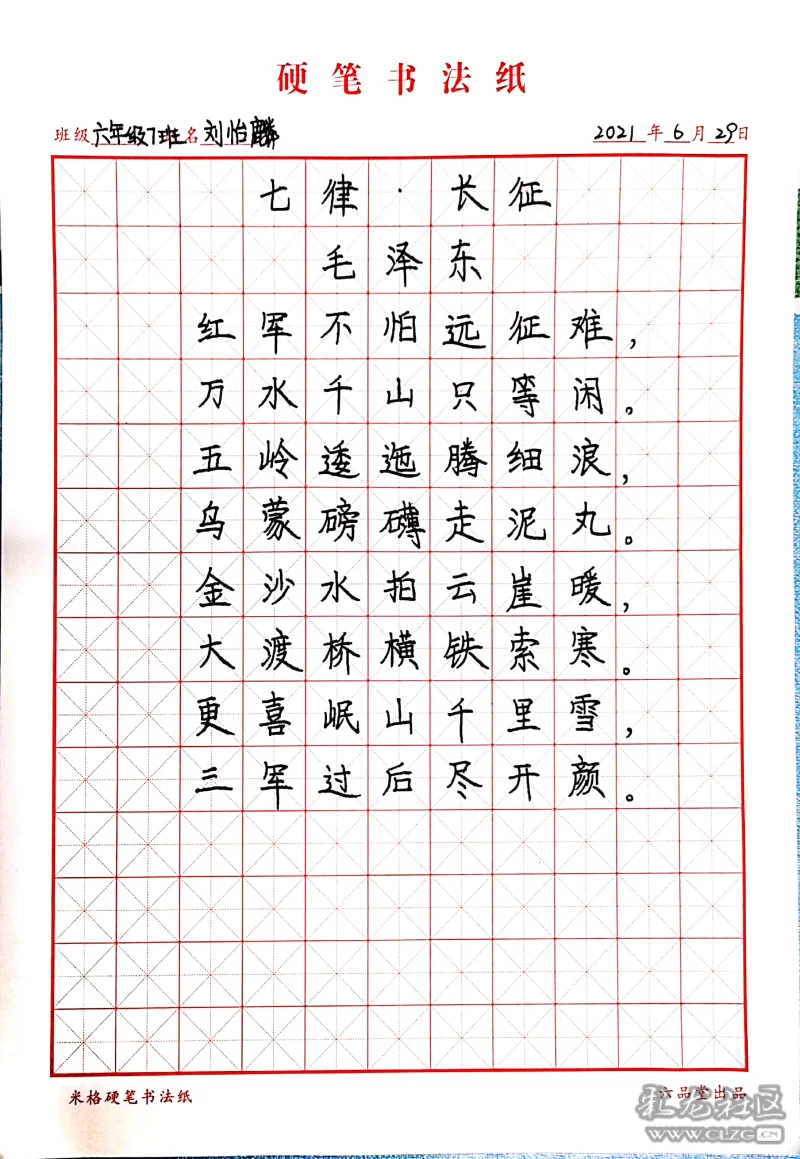 硬笔书法纸
班级六年级7班名刘怡麟 2021年6月29日
七律·长征
毛泽东
红军不怕远征难，
万水千山只等闲。
五岭逶迤腾细浪，
乌蒙磅礴走泥丸。
金沙水拍云崖暖，
大渡桥横铁索寒。
更喜岷山千里雪，
三军过后尽开颜。
米格硬笔书法纸 六品堂出品
社区
www.CLZG.CN